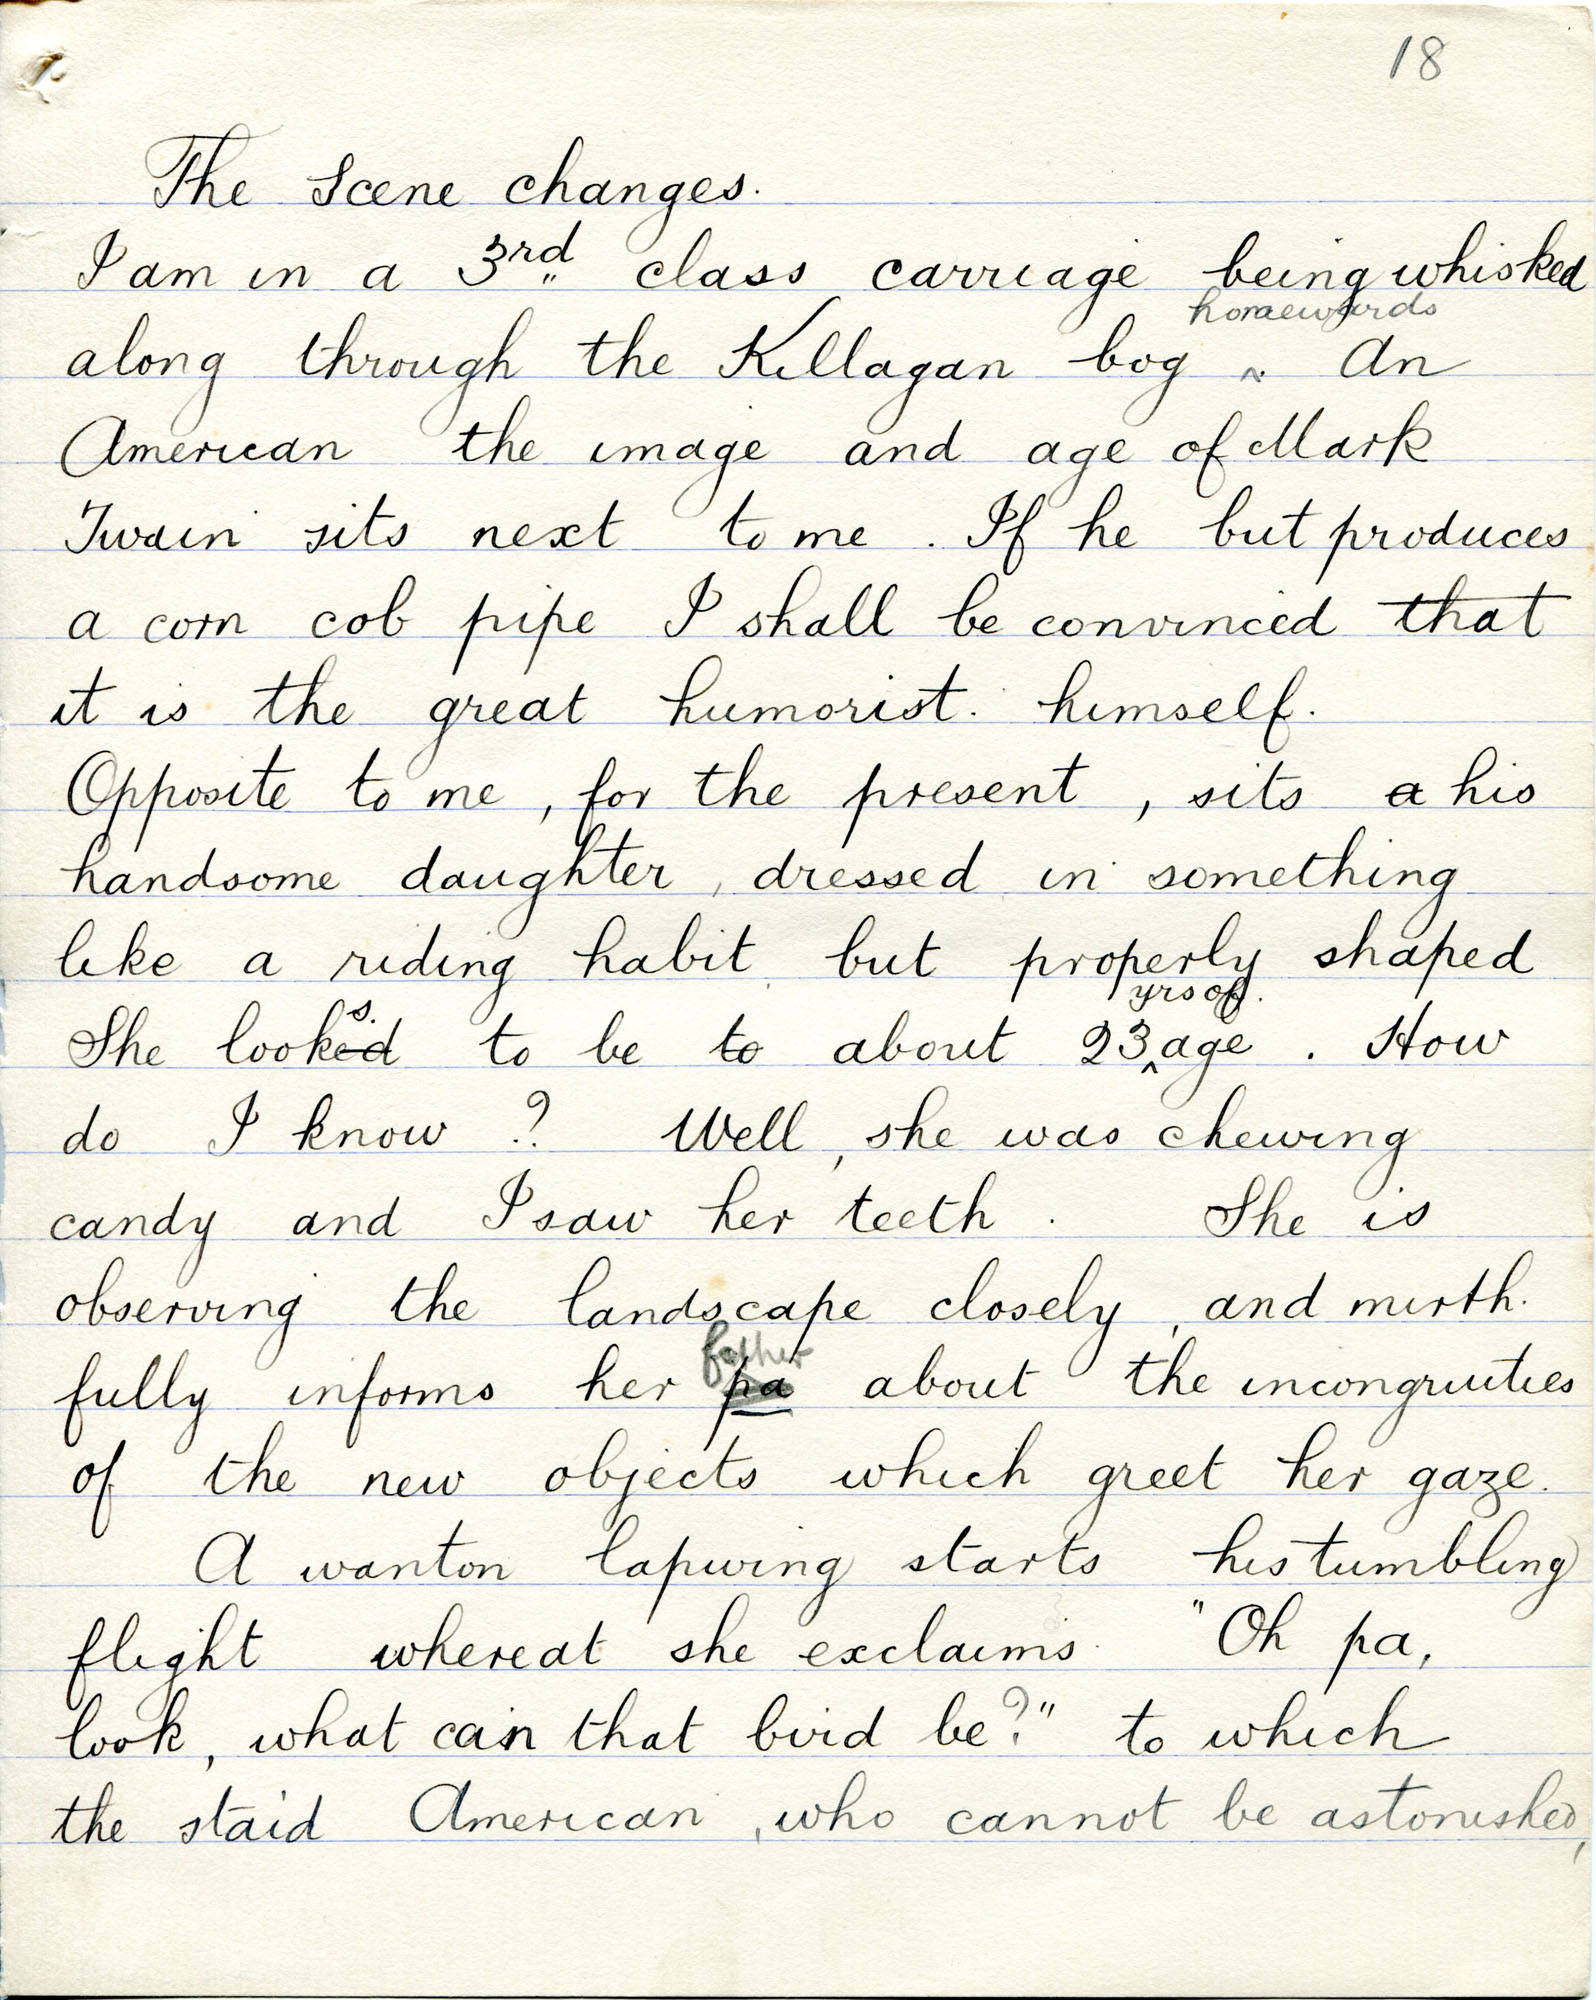 18
The Scene changes.
I am in a 3rd class carriage being whisked
homewards
along through the Killagan bog ^. An
American the image and age of Mark
Twain sits next to me . If he but produces
a corn cob pipe I shall be convinced that
it is the great humorist. himself.
Opposite to me , for the present , sits a his
handsome daughter , dressed in something
like a riding habit but properly shaped
s. yrs of.
She looked to be to about 23^age . How
do I know ? Well , she was chewing
candy and I saw her teeth . She is
observing the landscape closely , and mirth.
father
fully informs her pa about the incongruities
of the new objects which greet her gaze.
A wanton lapwing starts his tumbling
flight whereat she exclaims "Oh pa,
look, what can that bird be?" to which
the staid American , who cannot be astonished,